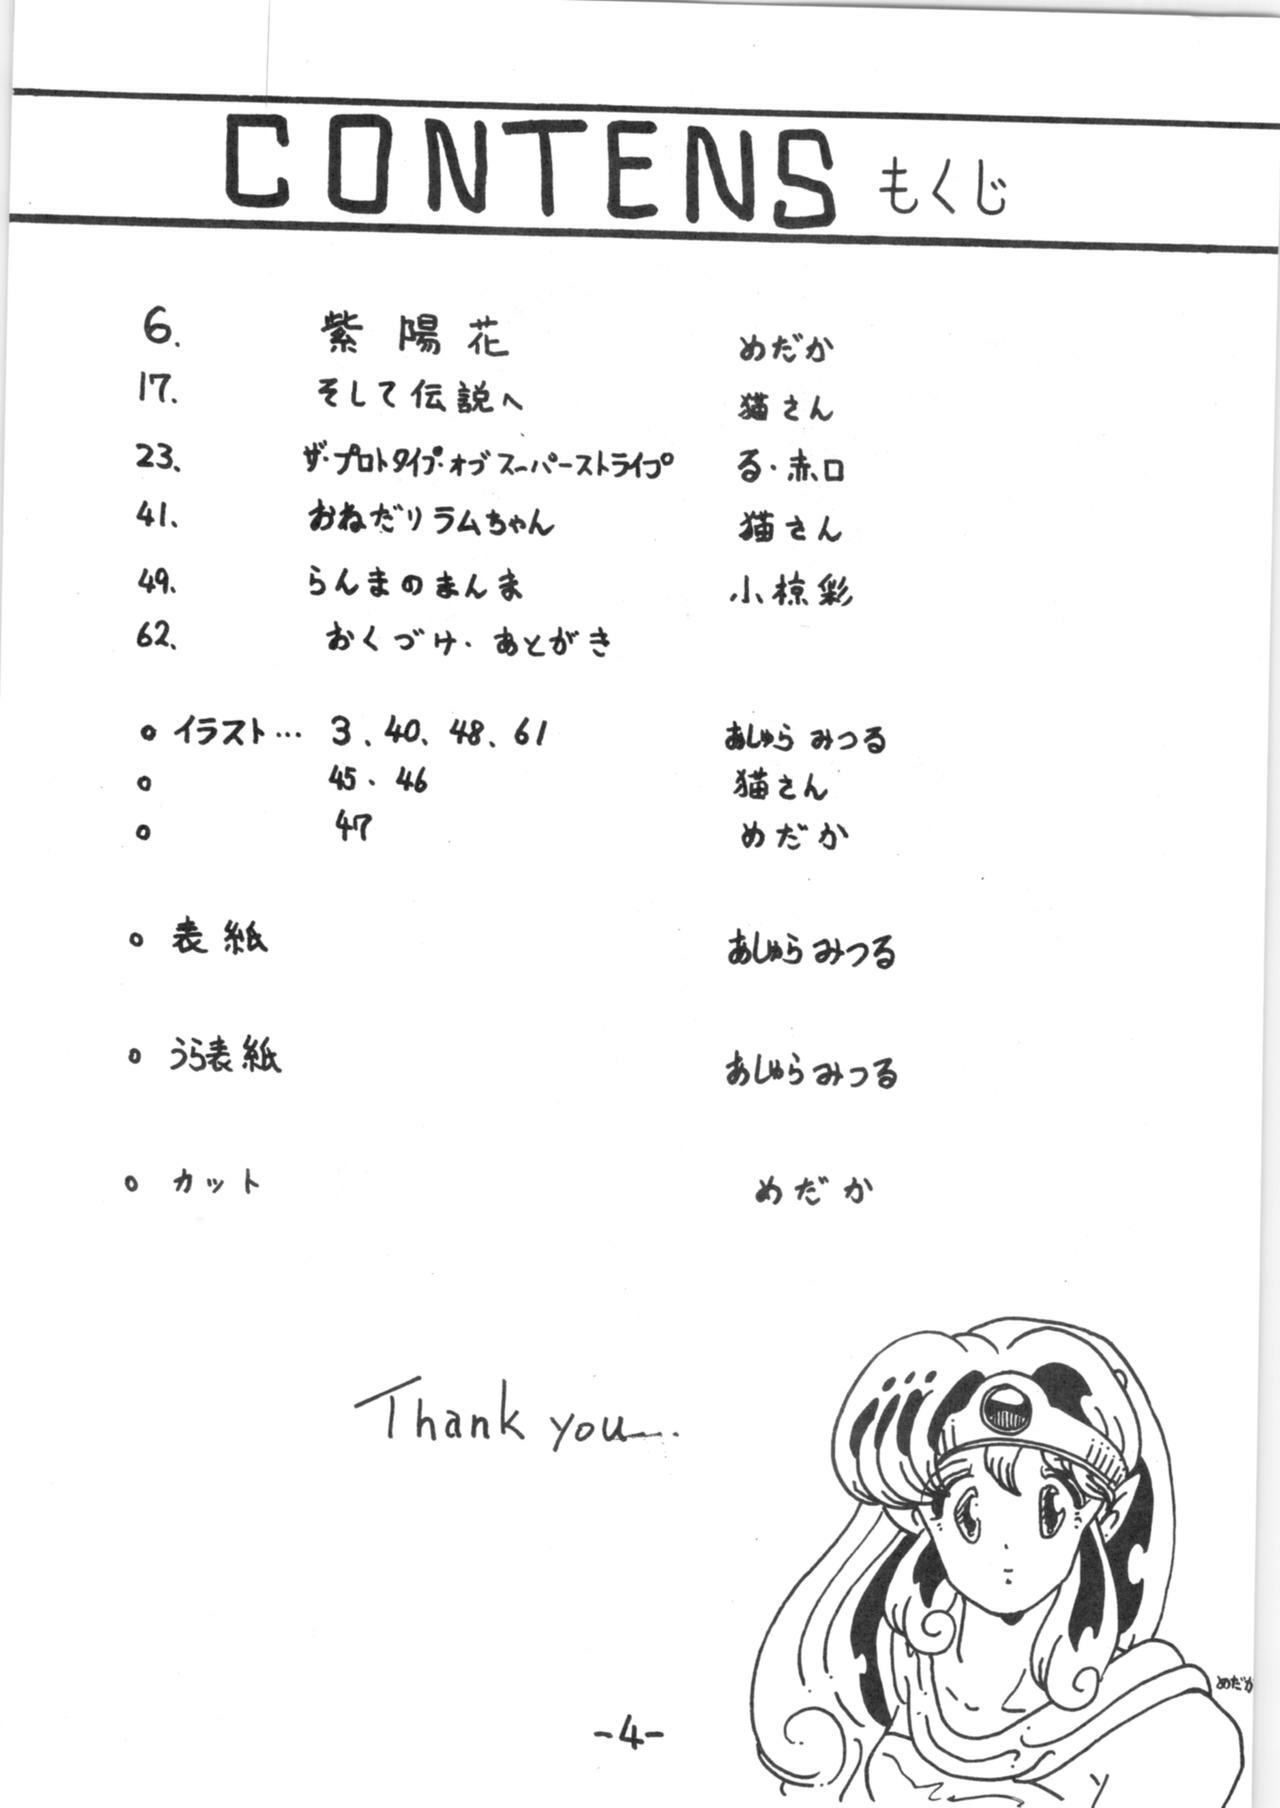 CONTENS もくじ
6. 紫陽花 めだか
17. そして伝説へ 猫さん
23. ザ・プロトタイプ・オブスーパーストライプ る・赤口
41. おねだりラムちゃん 猫さん
49. らんまのまんま 小椋彩
62. おくづけ・あとがき
○ イラスト… 3、40、48、61 あしゅらみつる
○ 45・46 猫さん
○ 47 めだか
○ 表紙 あしゅらみつる
○ うら表紙 あしゅらみつる
○ カット めだか
Thank you....
めだか
-4-